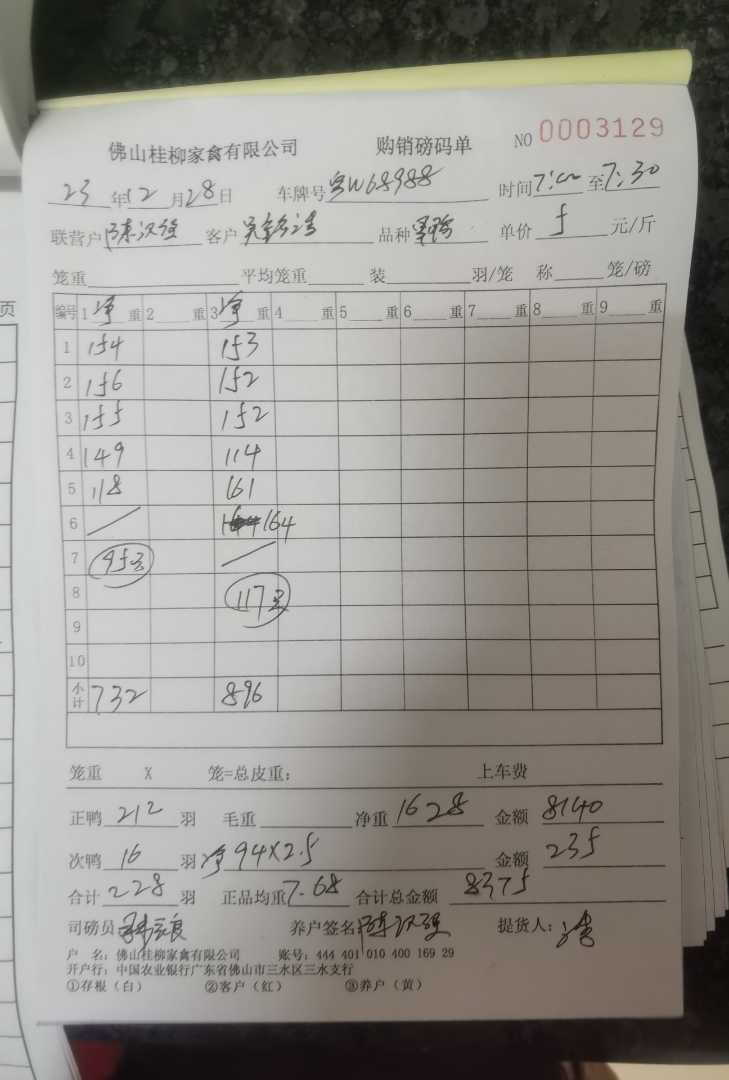 佛山桂柳家禽有限公司 购销磅码单 NO 0003129
23年12月28日 车牌号粤W68988 时间7:00至7:30
联营户陈汉强 客户 品种 单价5元/斤
笼重 平均笼重 装 羽/笼 称 笼/磅
编号 1净重 2 重 3净重 4 重 5 重 6 重 7 重 8 重 9 重
1 154 153
2 156 152
3 155 152
4 149 114
5 118 161
6 164
7 95只
8 117只
9
10
小计 732 896
笼重 X 笼=总皮重: 上车费
正鸭212羽 毛重 净重1628 金额8140
次鸭16羽 净94X2.5 金额235
合计228羽 正品均重7.68 合计总金额8375
司磅员 养户签名陈汉强 提货人:
户 名: 佛山桂柳家禽有限公司 账号: 444 401 010 400 169 29
开户行: 中国农业银行广东省佛山市三水区三水支行
①存根(白) ②客户(红) ③养户(黄)
页